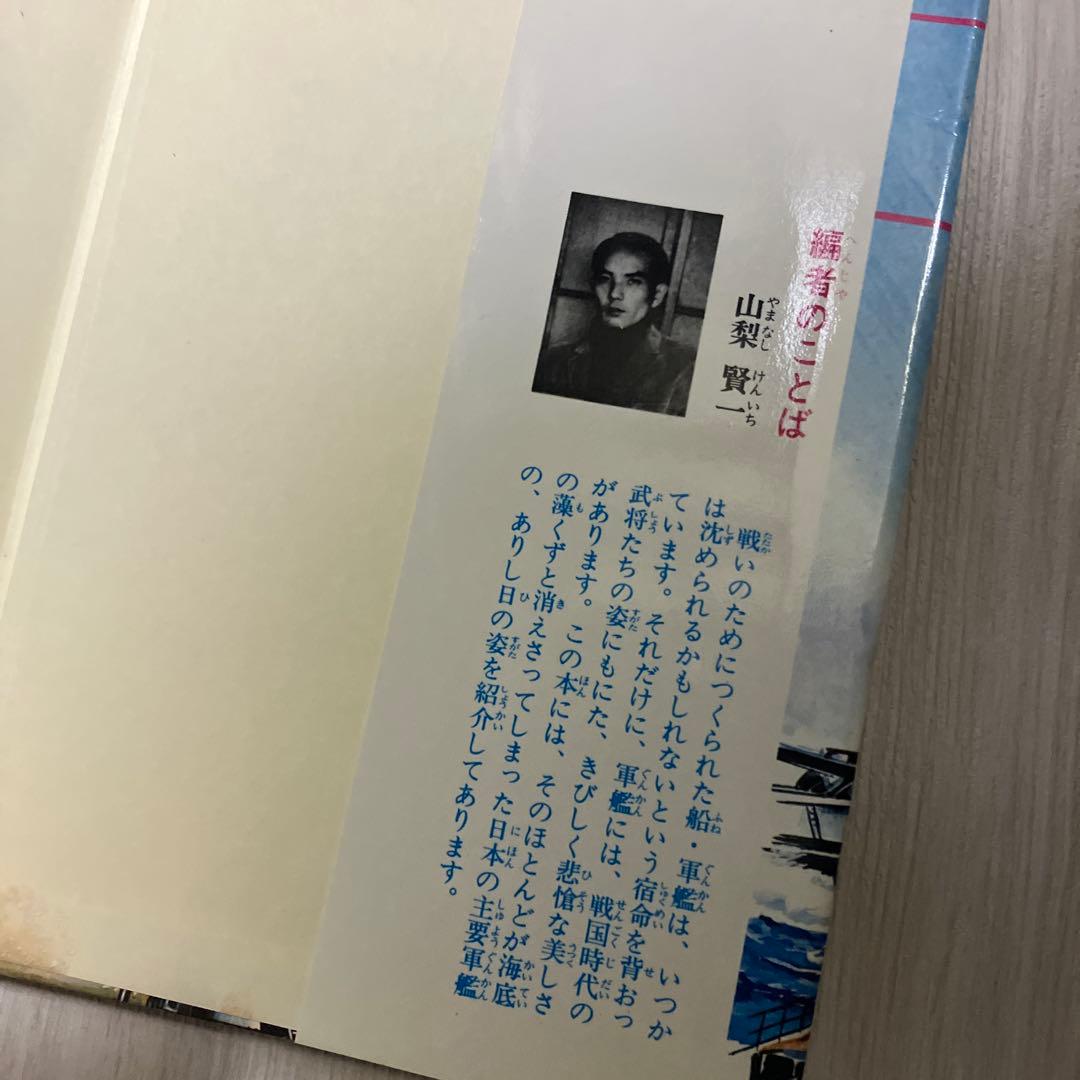 編者のことば
山梨 賢一
戦いのためにつくられた船・軍艦は、いつか
は沈められるかもしれないという宿命を背おっ
ています。それだけに、軍艦には、戦国時代の
武将たちの姿にもにた、きびしく悲愴な美しさ
があります。この本には、そのほとんどが海底
の藻くずと消えさってしまった日本の主要軍艦
の、ありし日の姿を紹介してあります。